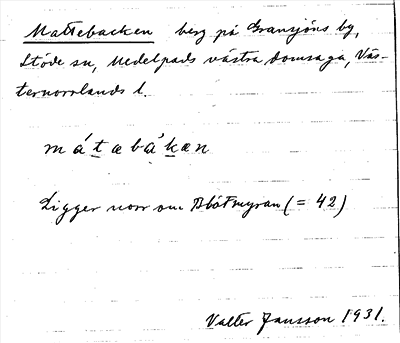 Mattebacken berg på Gransjöns by,
Stöde sn, Medelpads västra domsaga, Väs-
ternorrlands l.
mátabàkæn
Ligger norr om Blötmyran (= 42)
Valter Jansson 1931.